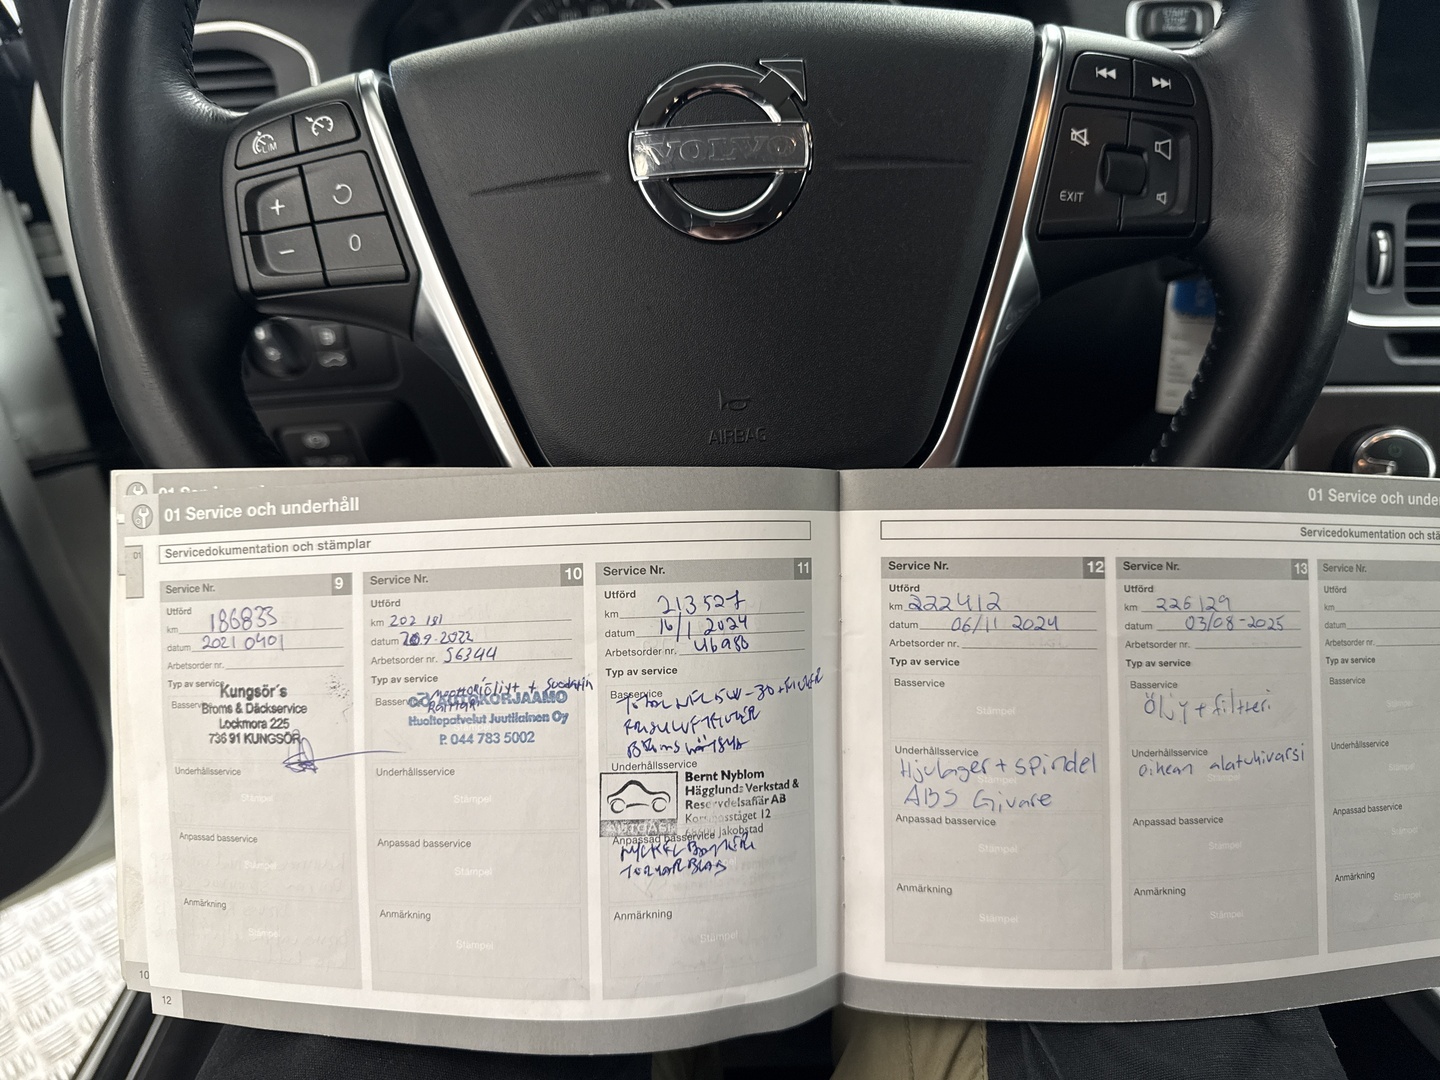 START
STOP
VOLVO
LIM
+
−
0
EXIT
AIRBAG
01 Service och underhåll
01
Servicedokumentation och stämplar
Service Nr. 9
Utförd
km 186833
datum 2021 0401
Arbetsorder nr.
Typ av service
Kungsör's
Broms & Däckservice
Lockmora 225
736 91 KUNGSÖR
Underhållsservice
Stämpel
Anpassad basservice
Stämpel
Anmärkning
Stämpel
Service Nr. 10
Utförd
km 202 181
datum 9-2022
Arbetsorder nr. 56344
Typ av service
Basservice
AUTOKORJAAMO
Huoltopalvelut Juutilainen Oy
P. 044 783 5002
Underhållsservice
Stämpel
Anpassad basservice
Stämpel
Anmärkning
Stämpel
Service Nr. 11
Utförd
km 213527
datum 16/1 2024
Arbetsorder nr.
Typ av service
Basservice
5W-30 + FILTER
Underhållsservice
Bernt Nyblom
Hägglunds Verkstad &
Reservdelsaffär AB
12
Jakobstad
Anpassad basservice
Anmärkning
Stämpel
10
12
01 Service och unde
Servicedokumentation och stä
Service Nr. 12
Utförd
km 222412
datum 06/11 2024
Arbetsorder nr.
Typ av service
Basservice
Stämpel
Underhållsservice
Hjulager + spindel
ABS Givare
Anpassad basservice
Stämpel
Anmärkning
Stämpel
Service Nr. 13
Utförd
km 226129
datum 03/08-2025
Arbetsorder nr.
Typ av service
Basservice
Öljy + filtteri
Underhållsservice
oikean alatukivarsi
Stämpel
Anpassad basservice
Stämpel
Anmärkning
Stämpel
Service Nr.
Utförd
km
datum
Arbetsorder nr.
Typ av service
Basservice
Underhållsservice
Anpassad basservice
Anmärkning